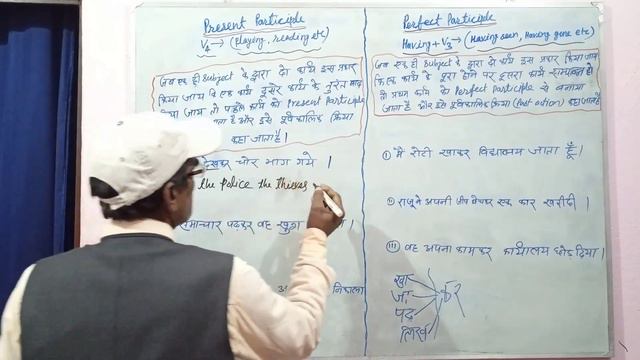 Present Participle
V4 → (Playing, reading etc)
जब एक ही Subject के द्वारा दो कार्य इस प्रकार
किया जाय कि एक कार्य दुसरे कार्य के तुरंत बाद
किया जाय तो पहले कार्य को Present Participle
जाता है और इसे पूर्वकालिक क्रिया
कहा जाता है।
देखकर चोर भाग गये ।
the Police the Thieves
समाचार पढ़कर वह खुश
निकाला
Perfect Participle
Having + V3 → (Having seen, Having gone etc)
जब एक ही Subject के द्वारा दो कार्य इस प्रकार किया जाय
कि एक कार्य के पूरा होने पर दूसरा कार्य सम्पन्न हो
तो प्रथम कार्य को Perfect Participle से बनाया
जाता है और इसे पूर्वकालिक क्रिया (Past action) कहा जाता है
① मैं रोटी खाकर विद्यालय जाता हूँ।
② राजू ने अपनी जीप बेचकर एक कार खरीदी ।
III वह अपना काम कर कार्यालय छोड़ दिया ।
खा
जा
पढ़
लिख
कर